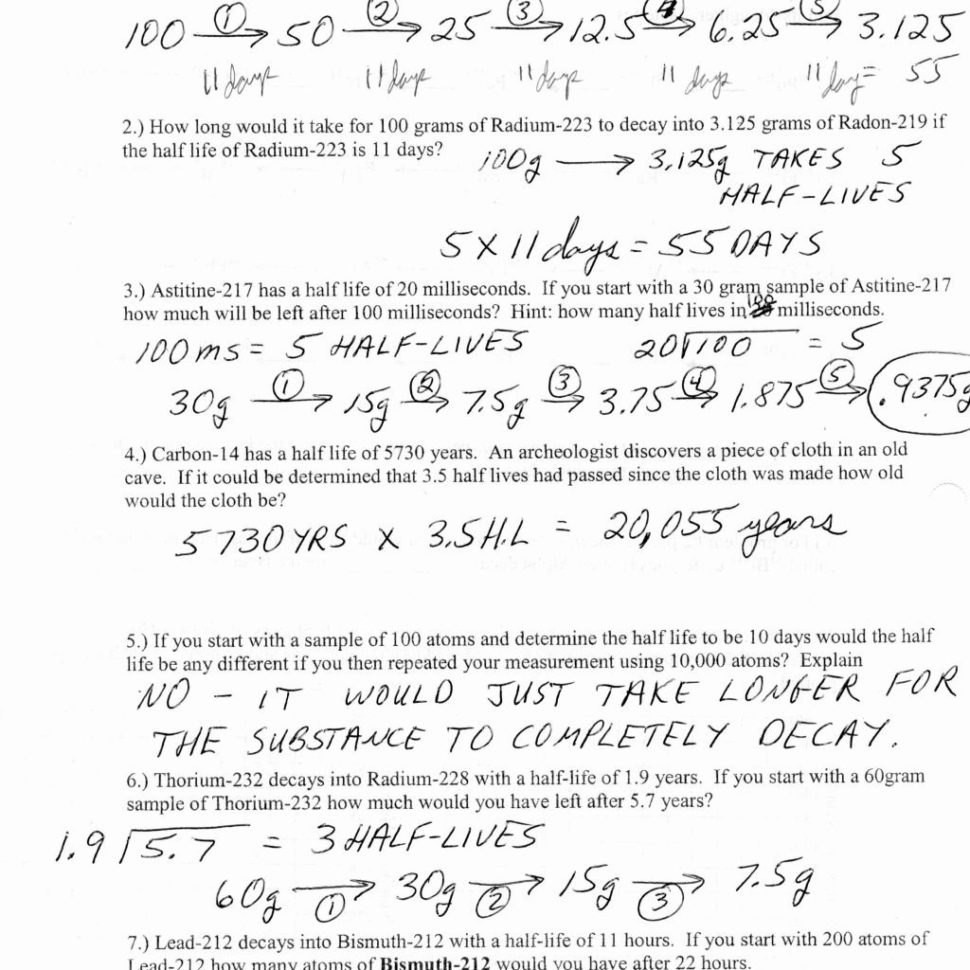 100 ① → 50 ② → 25 ③ → 12.5 ④ → 6.25 ⑤ → 3.125
11 days 11 days 11 days 11 days 11 day = 55
2.) How long would it take for 100 grams of Radium-223 to decay into 3.125 grams of Radon-219 if
the half life of Radium-223 is 11 days?
100g → 3.125g TAKES 5
HALF-LIVES
5 X 11 days = 55 DAYS
3.) Astitine-217 has a half life of 20 milliseconds. If you start with a 30 gram sample of Astitine-217
how much will be left after 100 milliseconds? Hint: how many half lives in 100 milliseconds.
100 ms = 5 HALF-LIVES 20√100 = 5
30g ① → 15g ② → 7.5g ③ → 3.75 ④ → 1.875 ⑤ → .9375g
4.) Carbon-14 has a half life of 5730 years. An archeologist discovers a piece of cloth in an old
cave. If it could be determined that 3.5 half lives had passed since the cloth was made how old
would the cloth be?
5730 YRS X 3.5 H.L = 20,055 years
5.) If you start with a sample of 100 atoms and determine the half life to be 10 days would the half
life be any different if you then repeated your measurement using 10,000 atoms? Explain
NO - IT WOULD JUST TAKE LONGER FOR
THE SUBSTANCE TO COMPLETELY DECAY.
6.) Thorium-232 decays into Radium-228 with a half-life of 1.9 years. If you start with a 60gram
sample of Thorium-232 how much would you have left after 5.7 years?
1.9√5.7 = 3 HALF-LIVES
60g → ① 30g → ② 15g → ③ 7.5g
7.) Lead-212 decays into Bismuth-212 with a half-life of 11 hours. If you start with 200 atoms of
Lead-212 how many atoms of Bismuth-212 would you have after 22 hours.